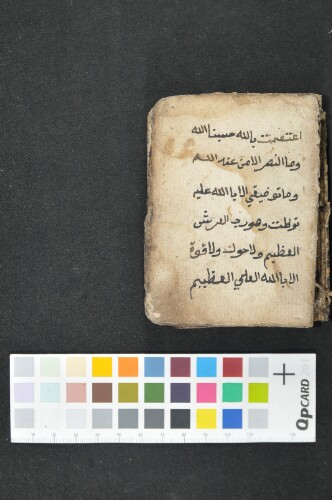 اعتصمت بالله حسبنا الله
وما النصر الا من عند الله
وما توفيقي الا بالله عليه
توكلت وهو رب العرش
العظيم ولا حول ولا قوة
الا بالله العلي العظيم
QPCARD 201